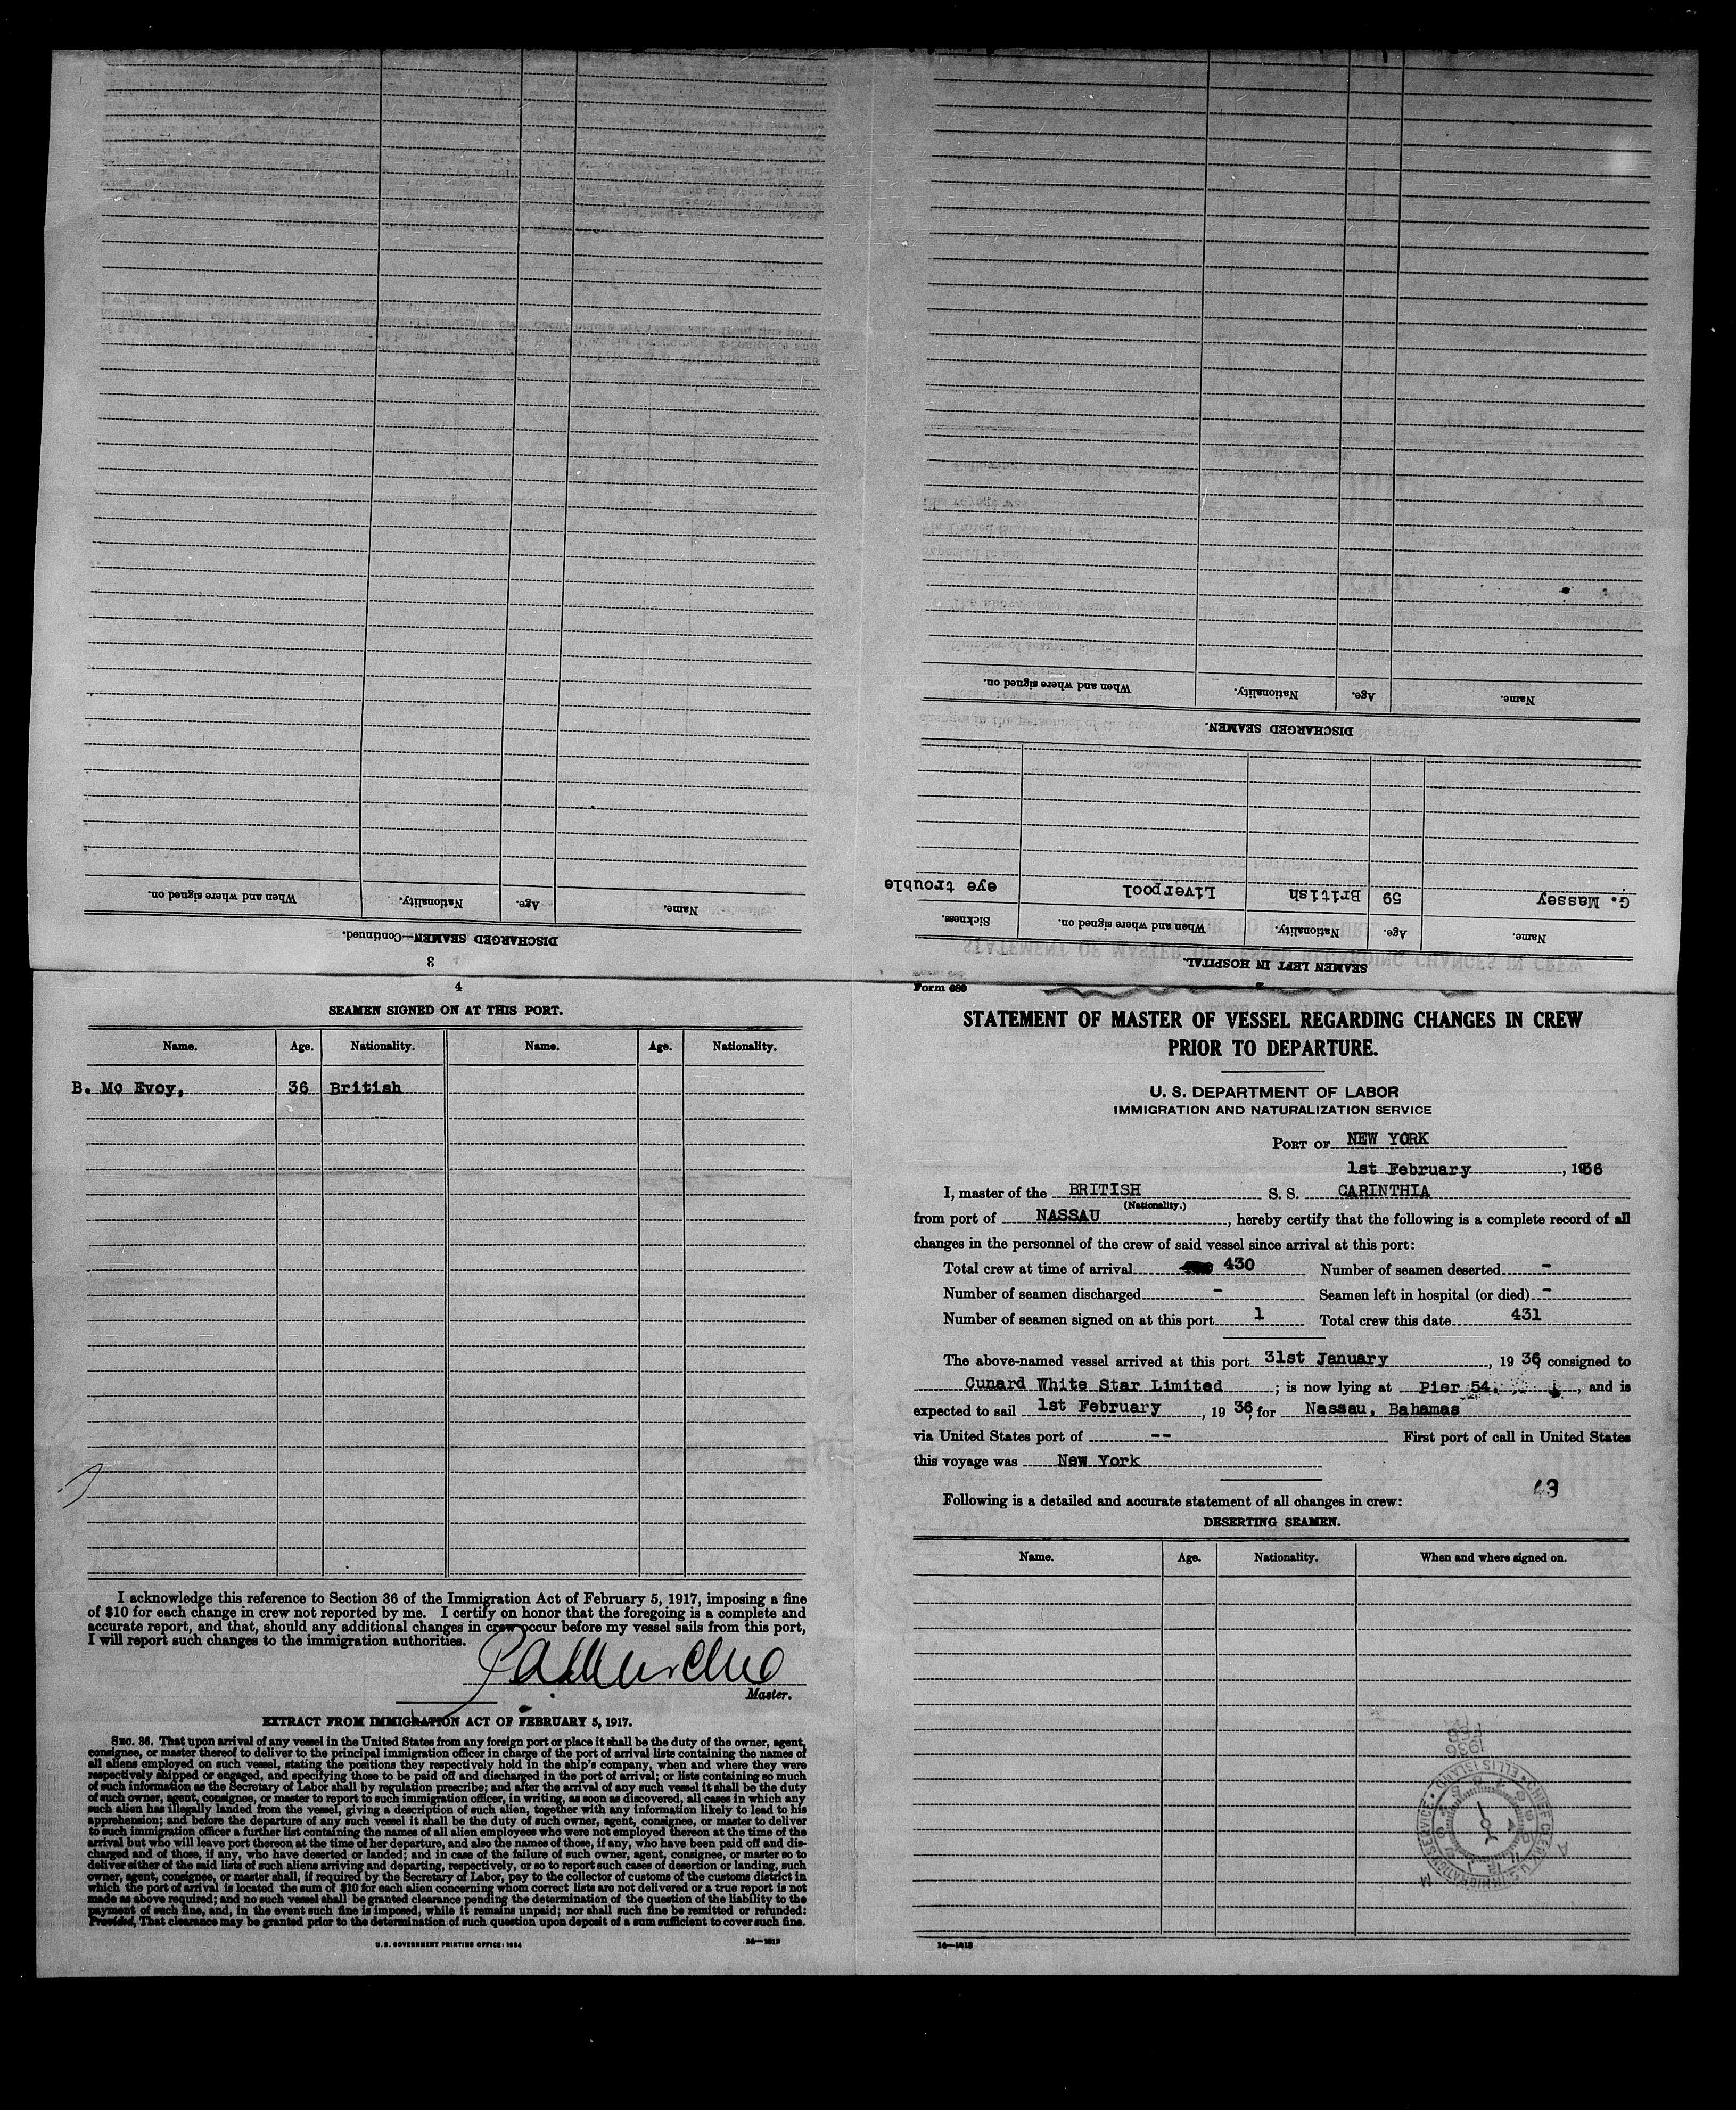 Form 689
STATEMENT OF MASTER OF VESSEL REGARDING CHANGES IN CREW
PRIOR TO DEPARTURE.
U. S. DEPARTMENT OF LABOR
IMMIGRATION AND NATURALIZATION SERVICE
PORT OF NEW YORK
1st February, 1936
I, master of the BRITISH S. S. CARINTHIA
(Nationality.)
from port of NASSAU, hereby certify that the following is a complete record of all
changes in the personnel of the crew of said vessel since arrival at this port:
Total crew at time of arrival 430 Number of seamen deserted -
Number of seamen discharged - Seamen left in hospital (or died) -
Number of seamen signed on at this port 1 Total crew this date 431
The above-named vessel arrived at this port 31st January, 1936, consigned to
Cunard White Star Limited; is now lying at Pier 54., and is
expected to sail 1st February, 1936, for Nassau, Bahamas
via United States port of -- First port of call in United States
this voyage was New York
43
Following is a detailed and accurate statement of all changes in crew:
DESERTING SEAMEN.
Name. Age. Nationality. When and where signed on.
FEB
1936
CHIEF CLERK U.S. IMMIGRATION SERVICE ELLIS ISLAND
16—1612
SEAMEN LEFT IN HOSPITAL.
Name. Age. Nationality. When and where signed on. Sickness.
G. Massey 59 British Liverpool eye trouble
DISCHARGED SEAMEN.
Name. Age. Nationality. When and where signed on.
3
DISCHARGED SEAMEN—Continued.
Name. Age. Nationality. When and where signed on.
4
SEAMEN SIGNED ON AT THIS PORT.
Name. Age. Nationality. Name. Age. Nationality.
B. Mc Evoy, 36 British
I acknowledge this reference to Section 36 of the Immigration Act of February 5, 1917, imposing a fine
of $10 for each change in crew not reported by me. I certify on honor that the foregoing is a complete and
accurate report, and that, should any additional changes in crew occur before my vessel sails from this port,
I will report such changes to the immigration authorities.
Master.
EXTRACT FROM IMMIGRATION ACT OF FEBRUARY 5, 1917.
SEC. 36. That upon arrival of any vessel in the United States from any foreign port or place it shall be the duty of the owner, agent,
consignee, or master thereof to deliver to the principal immigration officer in charge of the port of arrival lists containing the names of
all aliens employed on such vessel, stating the positions they respectively hold in the ship's company, when and where they were
respectively shipped or engaged, and specifying those to be paid off and discharged in the port of arrival; or lists containing so much
of such information as the Secretary of Labor shall by regulation prescribe; and after the arrival of any such vessel it shall be the duty
of such owner, agent, consignee, or master to report to such immigration officer, in writing, as soon as discovered, all cases in which any
such alien has illegally landed from the vessel, giving a description of such alien, together with any information likely to lead to his
apprehension; and before the departure of any such vessel it shall be the duty of such owner, agent, consignee, or master to deliver
to such immigration officer a further list containing the names of all alien employees who were not employed thereon at the time of the
arrival but who will leave port thereon at the time of her departure, and also the names of those, if any, who have been paid off and dis-
charged and of those, if any, who have deserted or landed; and in case of the failure of such owner, agent, consignee, or master so to
deliver either of the said lists of such aliens arriving and departing, respectively, or so to report such cases of desertion or landing, such
owner, agent, consignee, or master shall, if required by the Secretary of Labor, pay to the collector of customs of the customs district in
which the port of arrival is located the sum of $10 for each alien concerning whom correct lists are not delivered or a true report is not
made as above required; and no such vessel shall be granted clearance pending the determination of the question of the liability to the
payment of such fine, and, in the event such fine is imposed, while it remains unpaid; nor shall such fine be remitted or refunded:
Provided, That clearance may be granted prior to the determination of such question upon deposit of a sum sufficient to cover such fine.
U. S. GOVERNMENT PRINTING OFFICE: 1934 16—1612